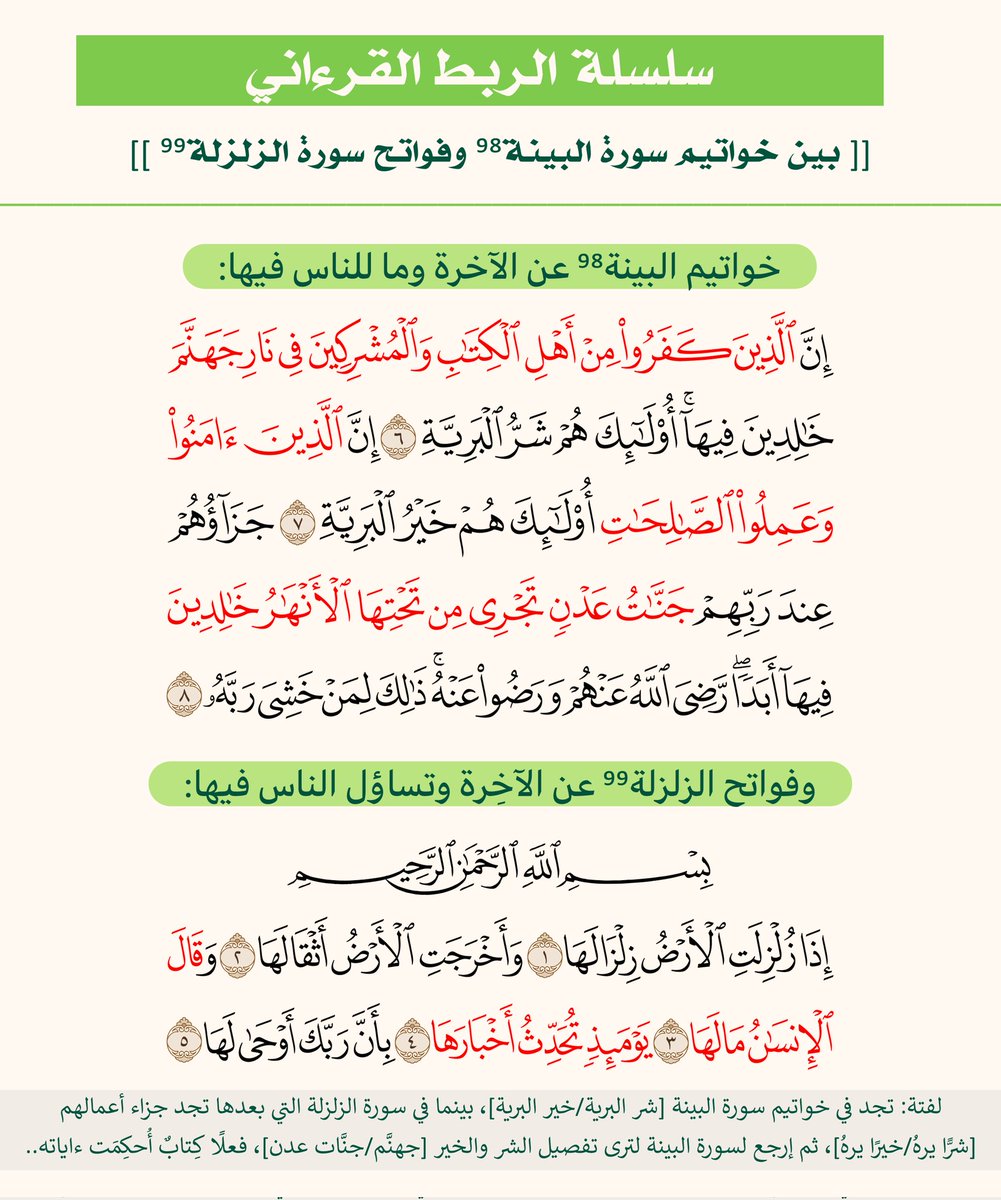 سلسلة الربط القرءاني
[[ بين خواتيم سورة البينة⁹⁸ وفواتح سورة الزلزلة⁹⁹ ]]
خواتيم البينة⁹⁸ عن الآخرة وما للناس فيها:
إِنَّ ٱلَّذِينَ كَفَرُوا۟ مِنْ أَهْلِ ٱلْكِتَٰبِ وَٱلْمُشْرِكِينَ فِى نَارِ جَهَنَّمَ
خَٰلِدِينَ فِيهَآ ۚ أُو۟لَٰٓئِكَ هُمْ شَرُّ ٱلْبَرِيَّةِ ٦ إِنَّ ٱلَّذِينَ ءَامَنُوا۟
وَعَمِلُوا۟ ٱلصَّٰلِحَٰتِ أُو۟لَٰٓئِكَ هُمْ خَيْرُ ٱلْبَرِيَّةِ ٧ جَزَآؤُهُمْ
عِندَ رَبِّهِمْ جَنَّٰتُ عَدْنٍ تَجْرِى مِن تَحْتِهَا ٱلْأَنْهَٰرُ خَٰلِدِينَ
فِيهَآ أَبَدًا ۖ رَّضِىَ ٱللَّهُ عَنْهُمْ وَرَضُوا۟ عَنْهُ ۚ ذَٰلِكَ لِمَنْ خَشِىَ رَبَّهُۥ ٨
وفواتح الزلزلة⁹⁹ عن الآخِرة وتساؤل الناس فيها:
بِسْمِ ٱللَّهِ ٱلرَّحْمَٰنِ ٱلرَّحِيمِ
إِذَا زُلْزِلَتِ ٱلْأَرْضُ زِلْزَالَهَا ١ وَأَخْرَجَتِ ٱلْأَرْضُ أَثْقَالَهَا ٢ وَقَالَ
ٱلْإِنسَٰنُ مَا لَهَا ٣ يَوْمَئِذٍ تُحَدِّثُ أَخْبَارَهَا ٤ بِأَنَّ رَبَّكَ أَوْحَىٰ لَهَا ٥
لفتة: تجد في خواتيم سورة البينة [شر البرية/خير البرية]، بينما في سورة الزلزلة التي بعدها تجد جزاء أعمالهم
[شرًّا يرهُ/خيرًا يرهُ]، ثم إرجع لسورة البينة لترى تفصيل الشر والخير [جهنَّم/جنَّات عدن]، فعلًا كِتابٌ أُحكِمَت ءاياته..